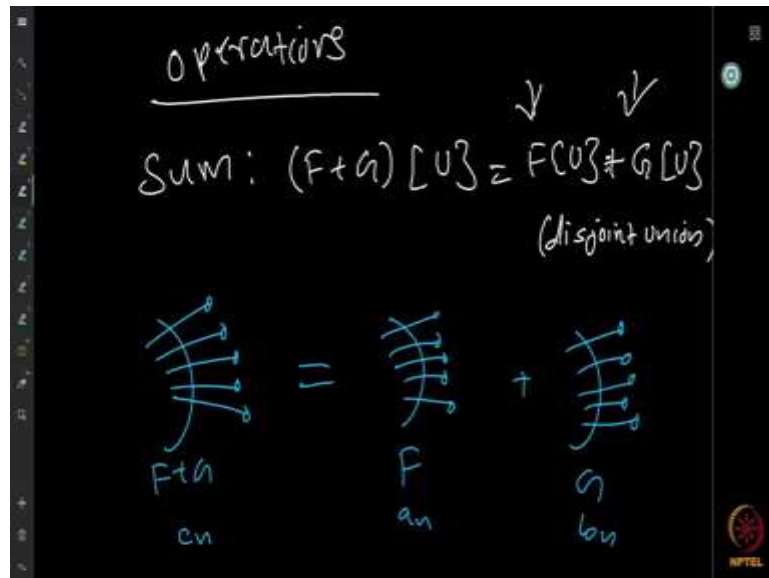 Operations
Sum: (F+G)[U] = F[U] + G[U]
(disjoint union)
= +
F+G F G
cn an bn
NPTEL